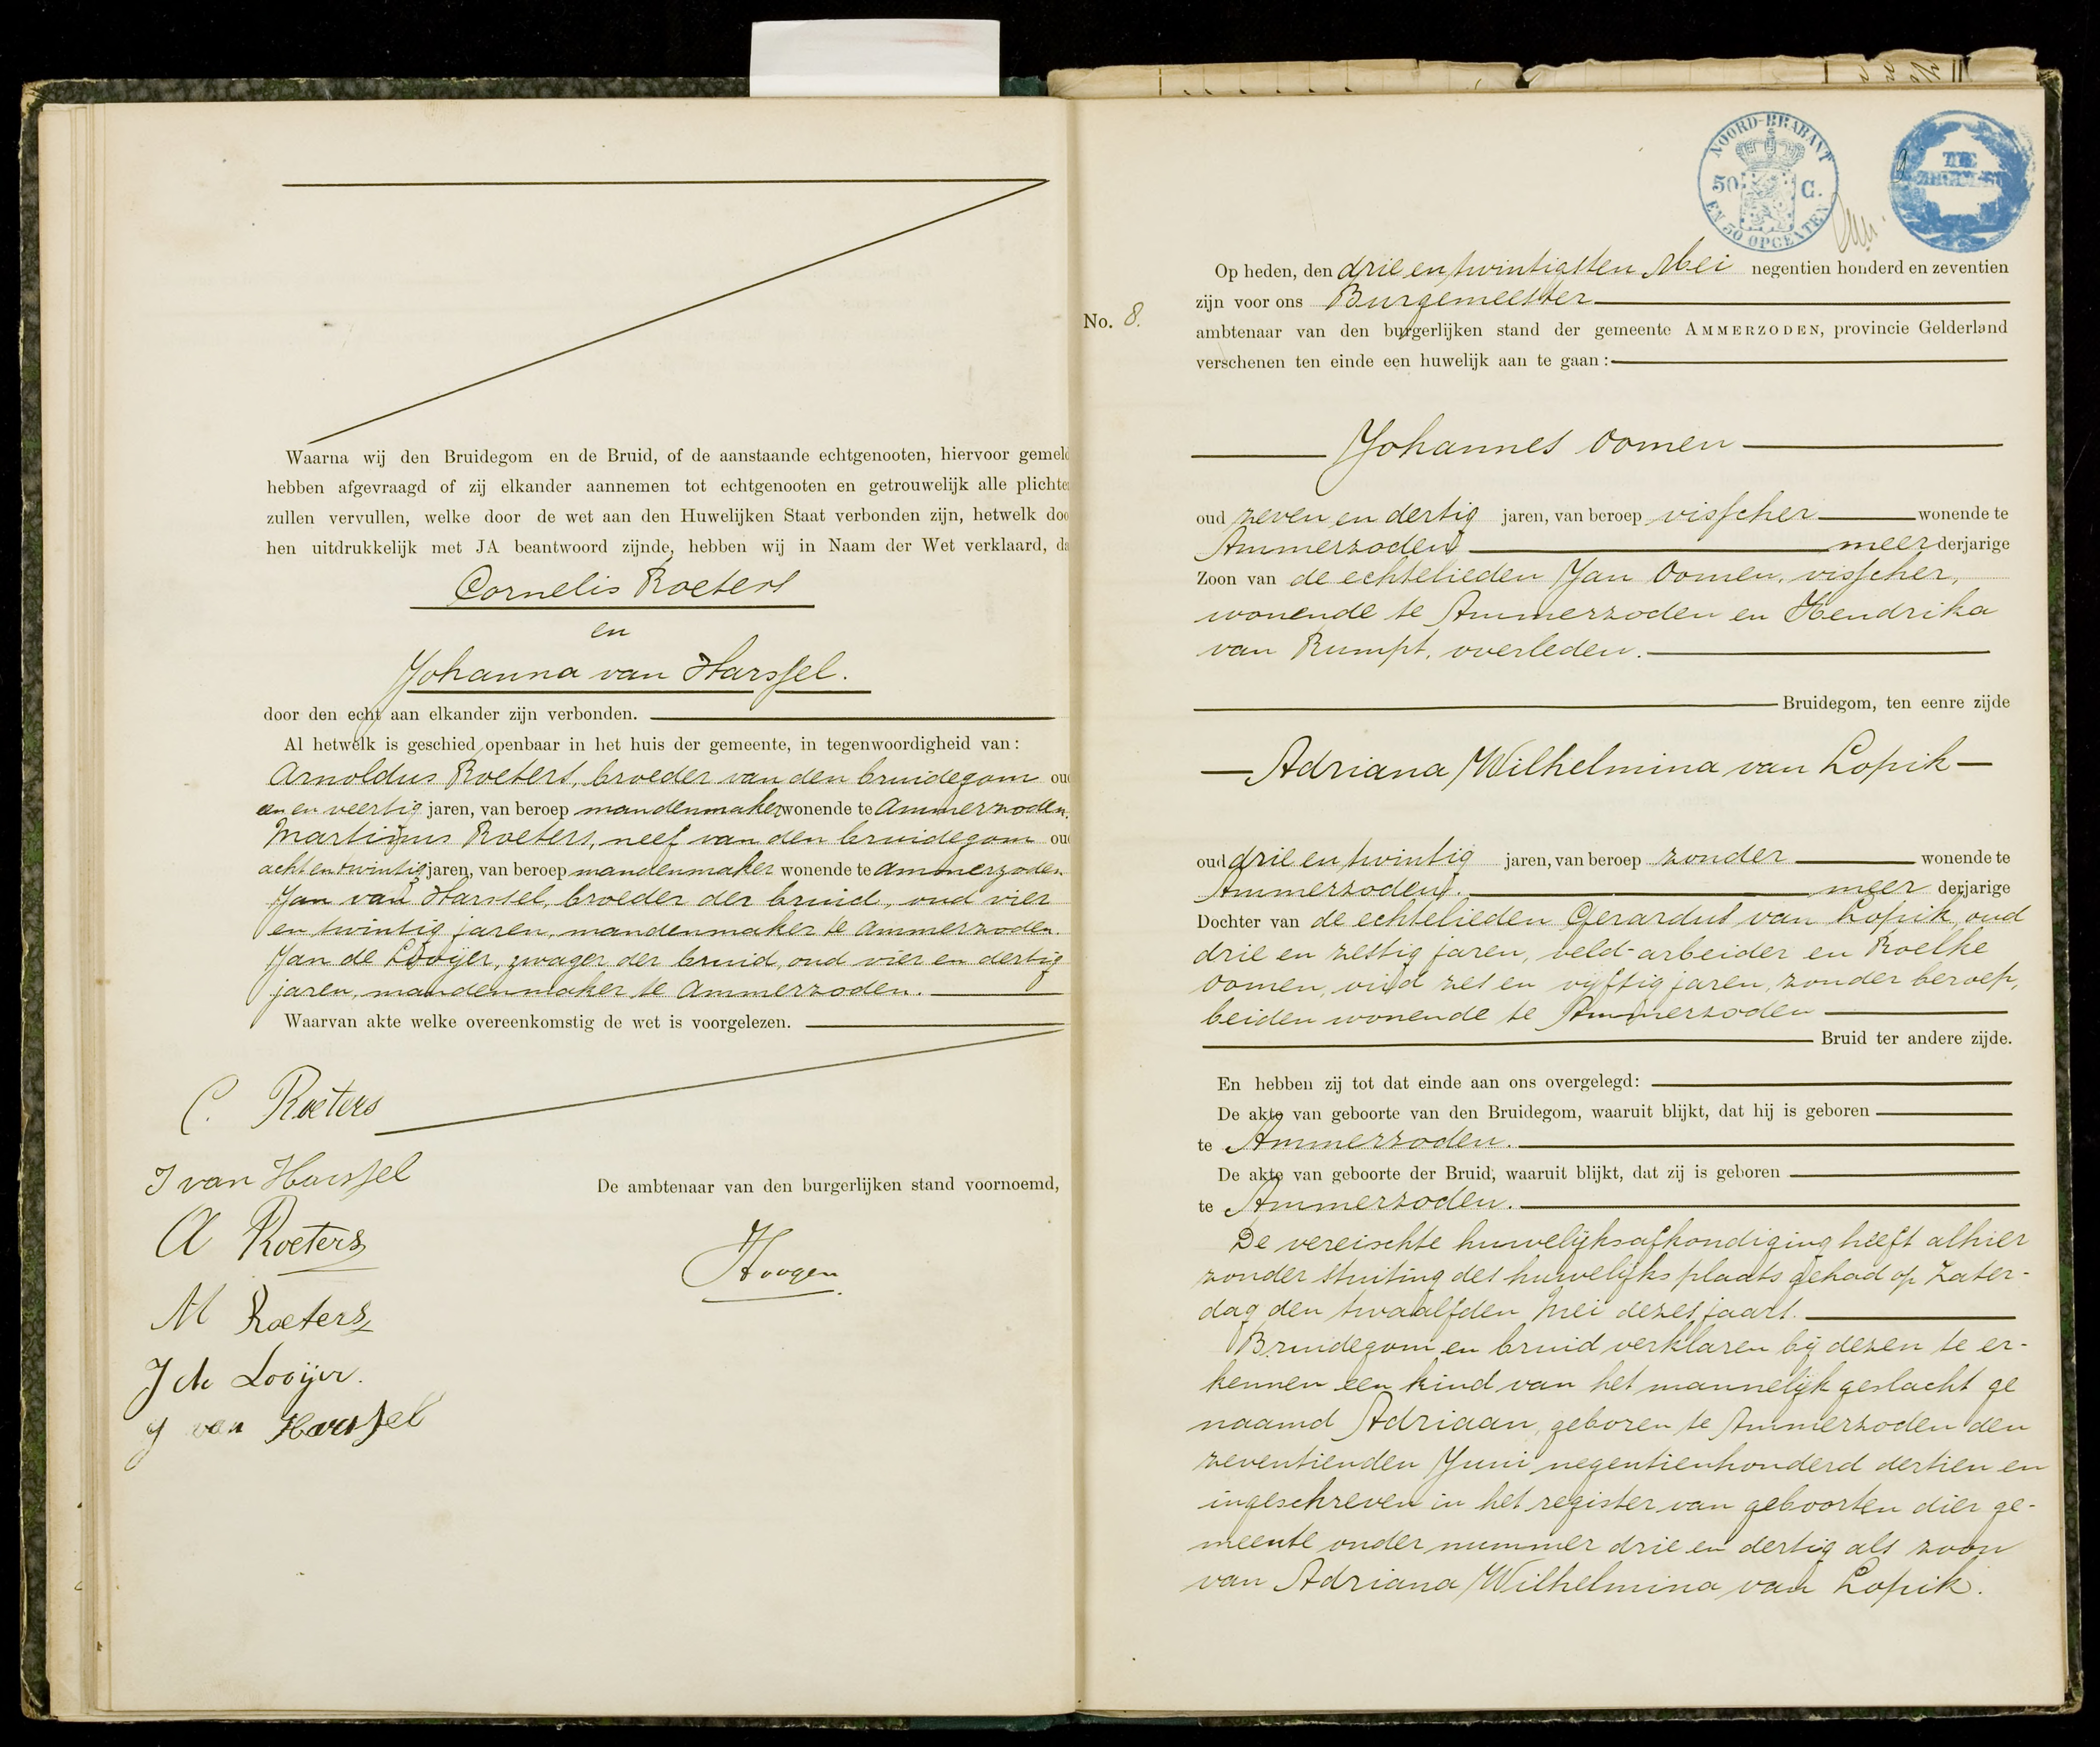 Waarna wij den Bruidegom en de Bruid, of de aanstaande echtgenooten, hiervoor gemeld
hebben afgevraagd of zij elkander aannemen tot echtgenooten en getrouwelijk alle plichten
zullen vervullen, welke door de wet aan den Huwelijken Staat verbonden zijn, hetwelk doo
hen uitdrukkelijk met JA beantwoord zijnde, hebben wij in Naam der Wet verklaard, da
Cornelis Roeters
en
Johanna van Harssel.
door den echt aan elkander zijn verbonden.
Al hetwelk is geschied openbaar in het huis der gemeente, in tegenwoordigheid van:
Arnoldus Roeters, broeder van den bruidegom ou
een en veertig jaren, van beroep mandenmaker wonende te Ammerzoden.
Martinus Roeters, neef van den bruidegom ou
acht en twintig jaren, van beroep mandenmaker wonende te Ammerzoden
Jan van Harssel, broeder der bruid, oud vier
en twintig jaren, mandenmaker te Ammerzoden.
Jan de Looijer, zwager der bruid, oud vier en dertig
jaren, mandenmaker te Ammerzoden.
Waarvan akte welke overeenkomstig de wet is voorgelezen.
C. Roeters
J van Harssel
De ambtenaar van den burgerlijken stand voornoemd,
A Roeters
Hoogen
M Roeters
J de Looijer.
J van Harssel
NOORD-BRABANT
50 C.
EN 50 OPCENTEN
No. 8.
Op heden, den drie en twintigsten Mei negentien honderd en zeventien
zijn voor ons Burgemeester
ambtenaar van den burgerlijken stand der gemeente AMMERZODEN, provincie Gelderland
verschenen ten einde een huwelijk aan te gaan:
Johannes Oomen
oud zeven en dertig jaren, van beroep visscher wonende te
Ammerzoden meerderjarige
Zoon van de echtelieden Jan Oomen, visscher,
wonende te Ammerzoden en Hendrika
van Rumpt, overleden.
Bruidegom, ten eenre zijde
Adriana Wilhelmina van Lopik
oud drie en twintig jaren, van beroep zonder wonende te
Ammerzoden. meer derjarige
Dochter van de echtelieden Gerardus van Lopik, oud
drie en zestig jaren, veld-arbeider en Roelke
Oomen, oud zes en vijftig jaren, zonder beroep,
beiden wonende te Ammerzoden
Bruid ter andere zijde.
En hebben zij tot dat einde aan ons overgelegd:
De akte van geboorte van den Bruidegom, waaruit blijkt, dat hij is geboren
te Ammerzoden.
De akte van geboorte der Bruid, waaruit blijkt, dat zij is geboren
te Ammerzoden.
De vereischte huwelijksafkondiging heeft alhier
zonder stuiting des huwelijks plaats gehad op Zater-
dag den twaalfden Mei dezes jaars.
Bruidegom en bruid verklaren bij dezen te er-
kennen een kind van het mannelijk geslacht ge
naamd Adriaan, geboren te Ammerzoden den
zeventienden Juni negentienhonderd dertien en
ingeschreven in het register van geboorten dier ge-
meente onder nummer drie en dertig als zoon
van Adriana Wilhelmina van Lopik.